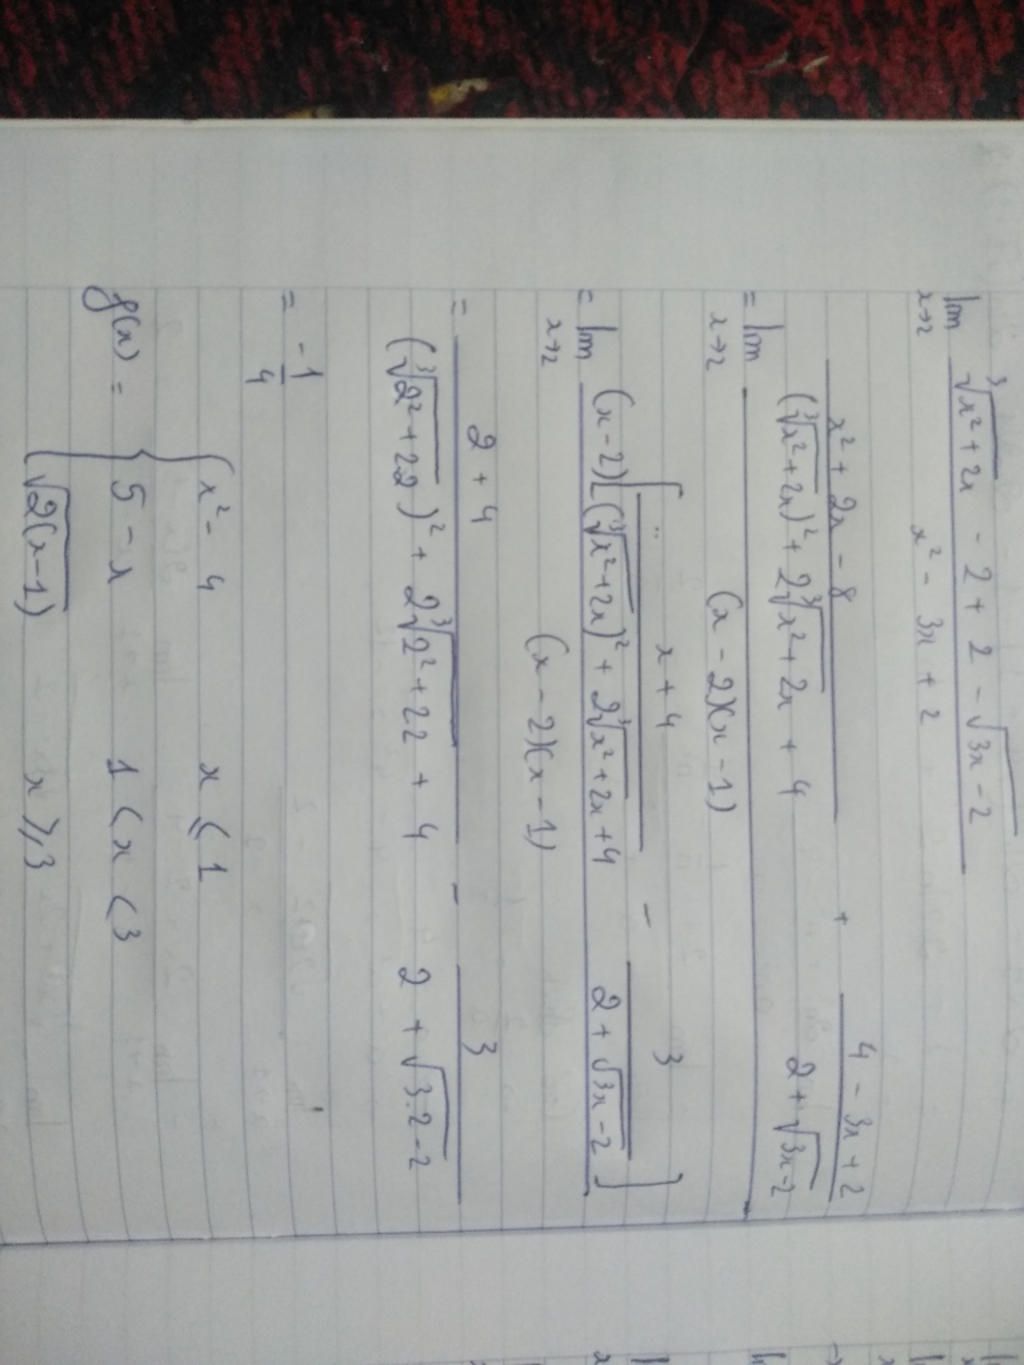 lim x→2 (∛(x² + 2x) - 2 + 2 - √(3x - 2)) / (x² - 3x + 2)
= lim x→2 ((x² + 2x - 8) / ((∛(x² + 2x))² + 2∛(x² + 2x) + 4) + (4 - 3x + 2) / (2 + √(3x - 2))) / ((x - 2)(x - 1))
= lim x→2 ((x - 2)[(x + 4) / ((∛(x² + 2x))² + 2∛(x² + 2x) + 4) - 3 / (2 + √(3x - 2))]) / ((x - 2)(x - 1))
= (2 + 4) / ((∛(2² + 2.2))² + 2∛(2² + 2.2) + 4) - 3 / (2 + √(3.2 - 2))
= -1/4
f(x) = { x² - 4 x ≤ 1
5 - x 1 < x < 3
√(2(x - 1)) x ≥ 3